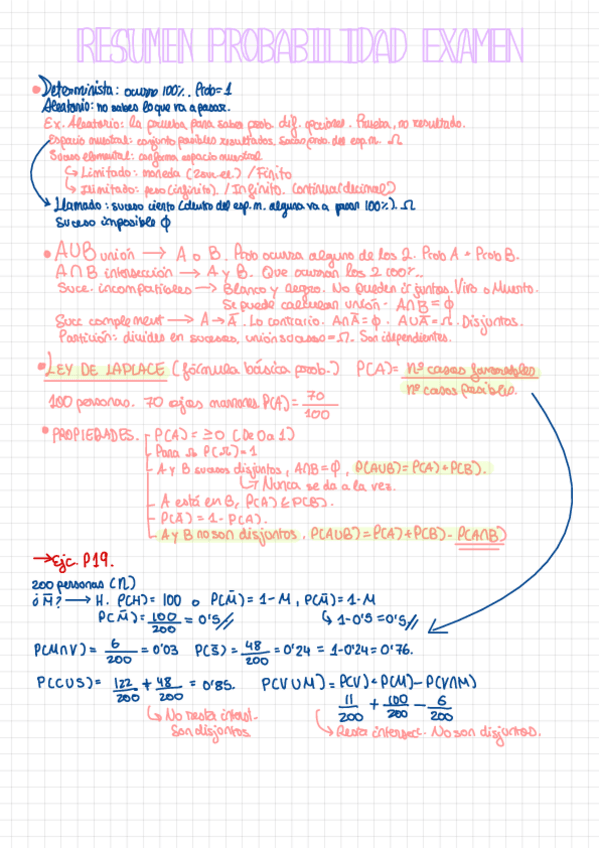 RESUMEN PROBABILIDAD EXAMEN
• Determinista: ocurre 100%. Prob = 1
Aleatorio: no sabes lo que va a pasar.
Ex. Aleatorio: la prueba para saber prob. dif. opciones. Prueba, no resultado.
Espacio muestral: conjunto posibles resultados. Sacas prob. del esp. m. Ω
Suceso elemental: conforma espacio muestral
↳ Limitado: moneda / Finito
↳ Ilimitado: peso (infinito). / Infinito. Continua (decimal)
→ Llamado: suceso cierto (dentro del esp. m. alguna va a pasar 100%). Ω
Suceso imposible ϕ
• AUB unión → A o B. Prob ocurra alguno de los 2. Prob A + Prob B.
A∩B intersección → A y B. Que ocurran los 2 100%.
Suce. incompatibles → Blanco y negro. No pueden ir juntas. Vivo o Muerto.
Se puede calcular unión. A∩B = ϕ
Suce complement → A → Ā. Lo contrario. A∩Ā = ϕ. AUĀ = Ω. Disjuntos.
Partición: divides en sucesos, unión suceso = Ω. Son idependientes.
• LEY DE LAPLACE (fórmula básica prob.) P(A) = nº casos favorables / nº casos posibles.
100 personas. 70 ojos marrones P(A) = 70/100
• PROPIEDADES. - P(A) = ≥0 (De 0 a 1)
- Para Ω P(Ω) = 1
- A y B sucesos disjuntos, A∩B = ϕ, P(AUB) = P(A) + P(B).
↳ Nunca se da a la vez.
- A está en B, P(A) ≤ P(B).
- P(Ā) = 1 - P(A).
- A y B no son disjuntos. P(AUB) = P(A) + P(B) - P(A∩B)
→ Ejc. P19.
200 personas (n)
¿M̄? → H. P(H) = 100 o P(M̄) = 1 - M, P(M̄) = 1 - M
P(M̄) = 100/200 = 0'5// ↳ 1 - 0'5 = 0'5//
P(M∩V) = 6/200 = 0'03 P(S̄) = 48/200 = 0'24 = 1 - 0'24 = 0'76.
P(CUS) = 122/200 + 48/200 = 0'85. P(VUM) = P(V) + P(M) - P(V∩M)
11/200 + 100/200 - 6/200
↳ No resta intersl.
Son disjuntos
↳ Resta intersecc. No son disjuntos.